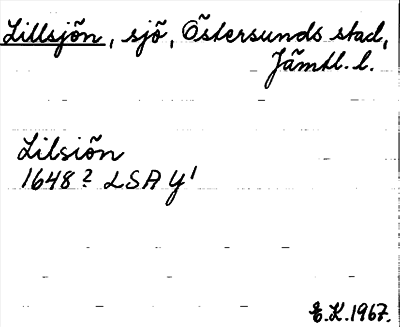 Lillsjön, sjö, Östersunds stad,
Jämtl. l.
Lilsiön
1648? LSA Y'
E.K. 1967.